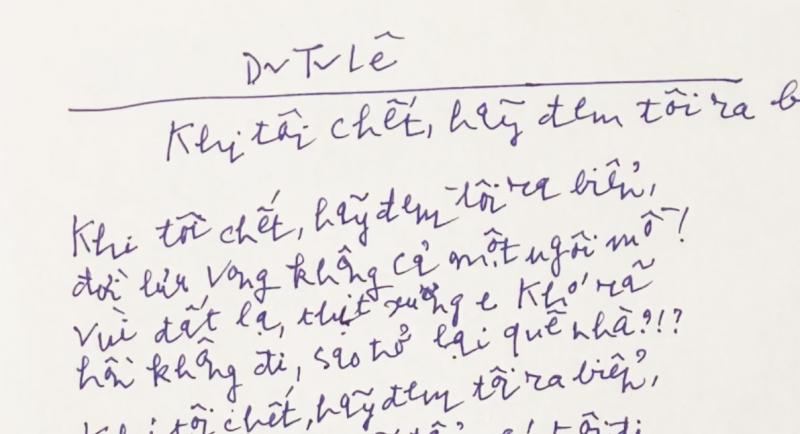 Du Tử Lê
Khi tôi chết, hãy đem tôi ra b
Khi tôi chết, hãy đem tôi ra biển,
đời lưu vong không cả một ngôi mồ!
vùi đất lạ, thịt xương e khó rã
hồn không đi, sao trở lại quê nhà?!?
Khi tôi chết, hãy đem tôi ra biển,
tôi đi